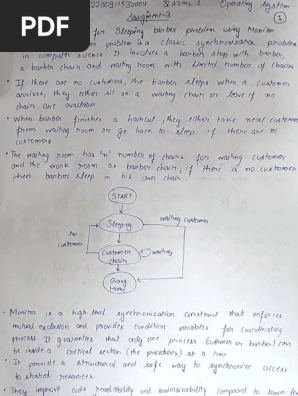 PDF
220091530004 IV AIML-1 Operating System
Assignment-3
1
for Sleeping barber problem using Monitor
problem is a classic synchronization problem
in computer science It involves a barber shop with barber
a barber chair and waiting room with limited number of chairs
• If there are no customers, the barber sleeps when a customer
arrives, they either sit on a waiting chair or leave if no
chair are available
• When barber finishes a haircut, they either take next customer
from waiting room or go back to sleep if there are no
customers
• The waiting room has "n" number of chairs for waiting customer
and the work room as barber chair, if there is no customer
then barber sleep in his own chair
START
Sleeping
waiting customer
No
customer
Customer
chair
waiting
Going
Home
• Monitor is a high level synchronization construct that enforces
mutual exclusion and provides condition variables for coordinating
process. It guarantees that only one process (customer or barber) can
be inside a critical section (the procedures) at a time
• It provide a structured and safe way to synchronize access
to shared resources
• They improve code readability and maintainability compared to lower-